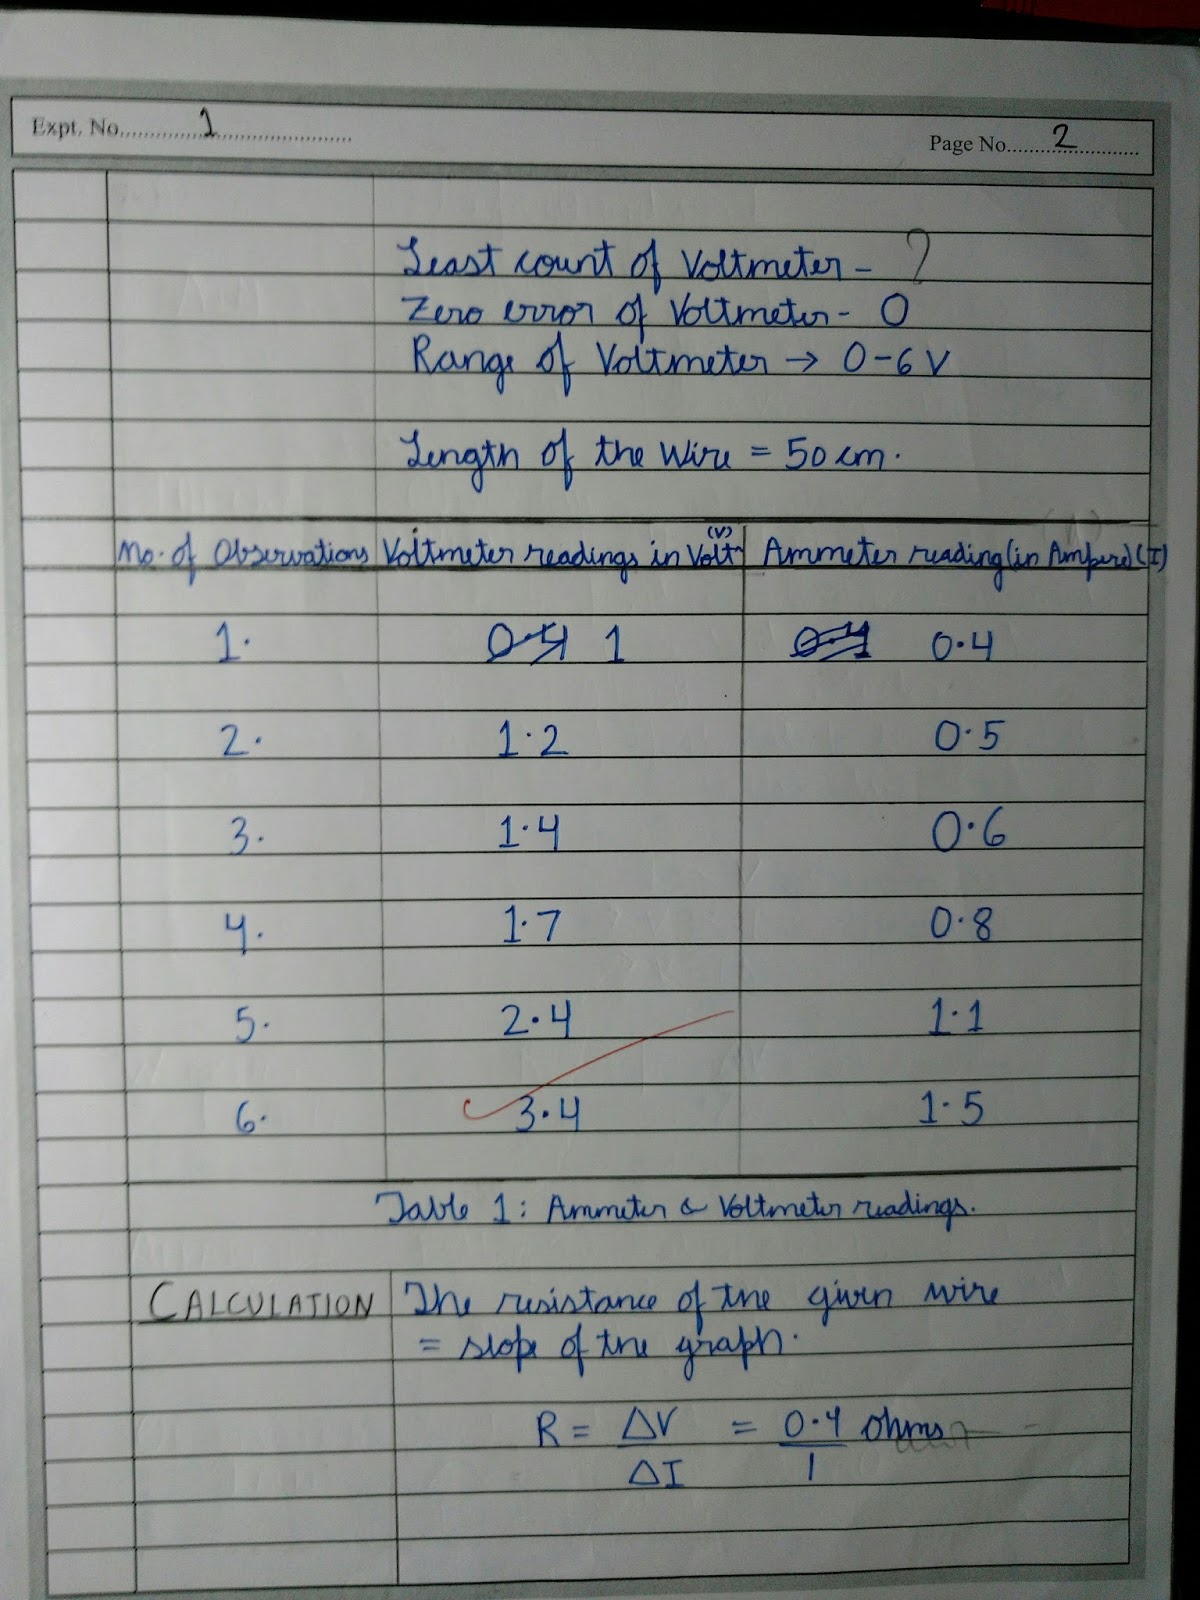 Expt. No. 1
Page No. 2
Least count of Voltmeter - ?
Zero error of Voltmeter - 0
Range of Voltmeter → 0-6 V
Length of the wire = 50 cm.
No. of Observations Voltmeter readings in Volt (V) Ammeter reading (in Ampere) (I)
1. 0.4 1 0.1 0.4
2. 1.2 0.5
3. 1.4 0.6
4. 1.7 0.8
5. 2.4 1.1
6. 3.4 1.5
Table 1: Ammeter & Voltmeter readings.
CALCULATION The resistance of the given wire
= slope of the graph.
R = ΔV = 0.4 ohms
ΔI 1